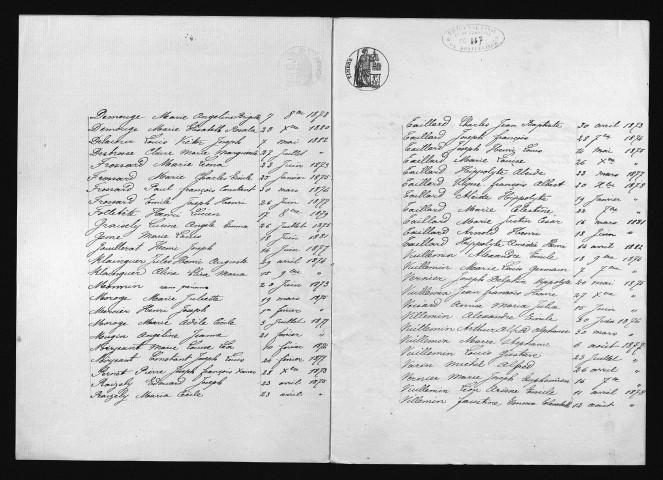 Demouge Marie Angeline Brigitte 7 8bre 1878
Demouge Marie Elisabeth Rosalie 28 Xbre 1880
Delacher Louis Victor Joseph 7 mai 1882
Claire Marie Françoise 27 Juillet "
Frossard Marie 28 Juin 1873
Frossard Marie Charles Emile 25 Janvier 1875
Frossard Paul François Constant 20 mars 1876
Frossard Emile Joseph Henri 26 Juin 1877
Folletête Henri Lucien 17 8bre 1879
Angèle Emma 26 Juillet 1875
Marie 18 Juin 1881
Jouillerot Henri Joseph 14 Juin 1877
Klainguer Jules Henri Auguste 29 avril 1874
Klainguer Aline Maria 15 9bre "
sans prénoms 20 Juin 1873
Monoge Marie Juliette 19 mars 1875
Monnier Henri Joseph février "
Monoge Marie Adèle Cécile 3 Juillet 1877
Mougin Angeline Jeanne février "
Marie Louise février 1876
Constant Joseph Louis 20 février 1877
Pierre Joseph François Xavier 28 Xbre 1873
Edouard Joseph 23 avril 1875
Maria Cécile 23 avril "
117
Taillard Charles Jean Baptiste 30 avril 1873
Taillard Joseph François 28 7bre 1874
Taillard Joseph Henri Louis mai 1875
Taillard Marie Louise 26 Xbre "
Taillard Hippolyte 23 mars 1877
Taillard François Albert 20 Xbre 1878
Taillard Hippolyte 19 Janvier "
Taillard Marie Célestine "
Taillard Marie Justin César 16 mars 1881
Taillard Arnold Henri 18 Juin "
Taillard Hippolyte Henri avril 1882
Vuillemin Alexandre Emile 13 9bre 1874
Vuillemin Marie Louis Germain 7 7bre "
Vernier Joseph Delphin Hippolyte 20 mai 1875
Vuillemin Jean François Pierre 27 Xbre "
Anna Marie Julia 15 Juin "
Villemin Alexandre Emile 30 Juin 1876
Vuillemin Arthur Alfred Alphonse 30 mars "
Vuillemin Marie Stéphanie 6 août 1877
Vuillemin Louis Gustave 23 Juillet "
Varin Michel Alfred 26 avril "
Vernier Marie Joseph 16 7bre "
Vuillemin Léon Arsène Emile 11 avril 1878
Villemin Faustine Emma Elisabeth 12 août "